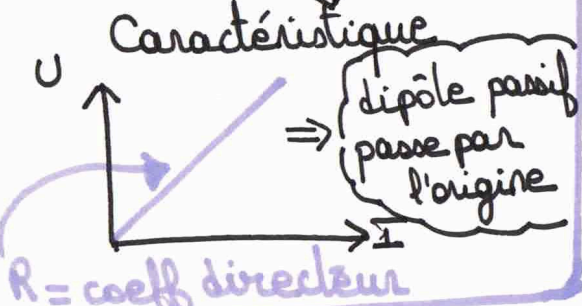 Caractéristique
U
⇒
dipôle passif
passe par
l'origine
I
R = coeff directeur